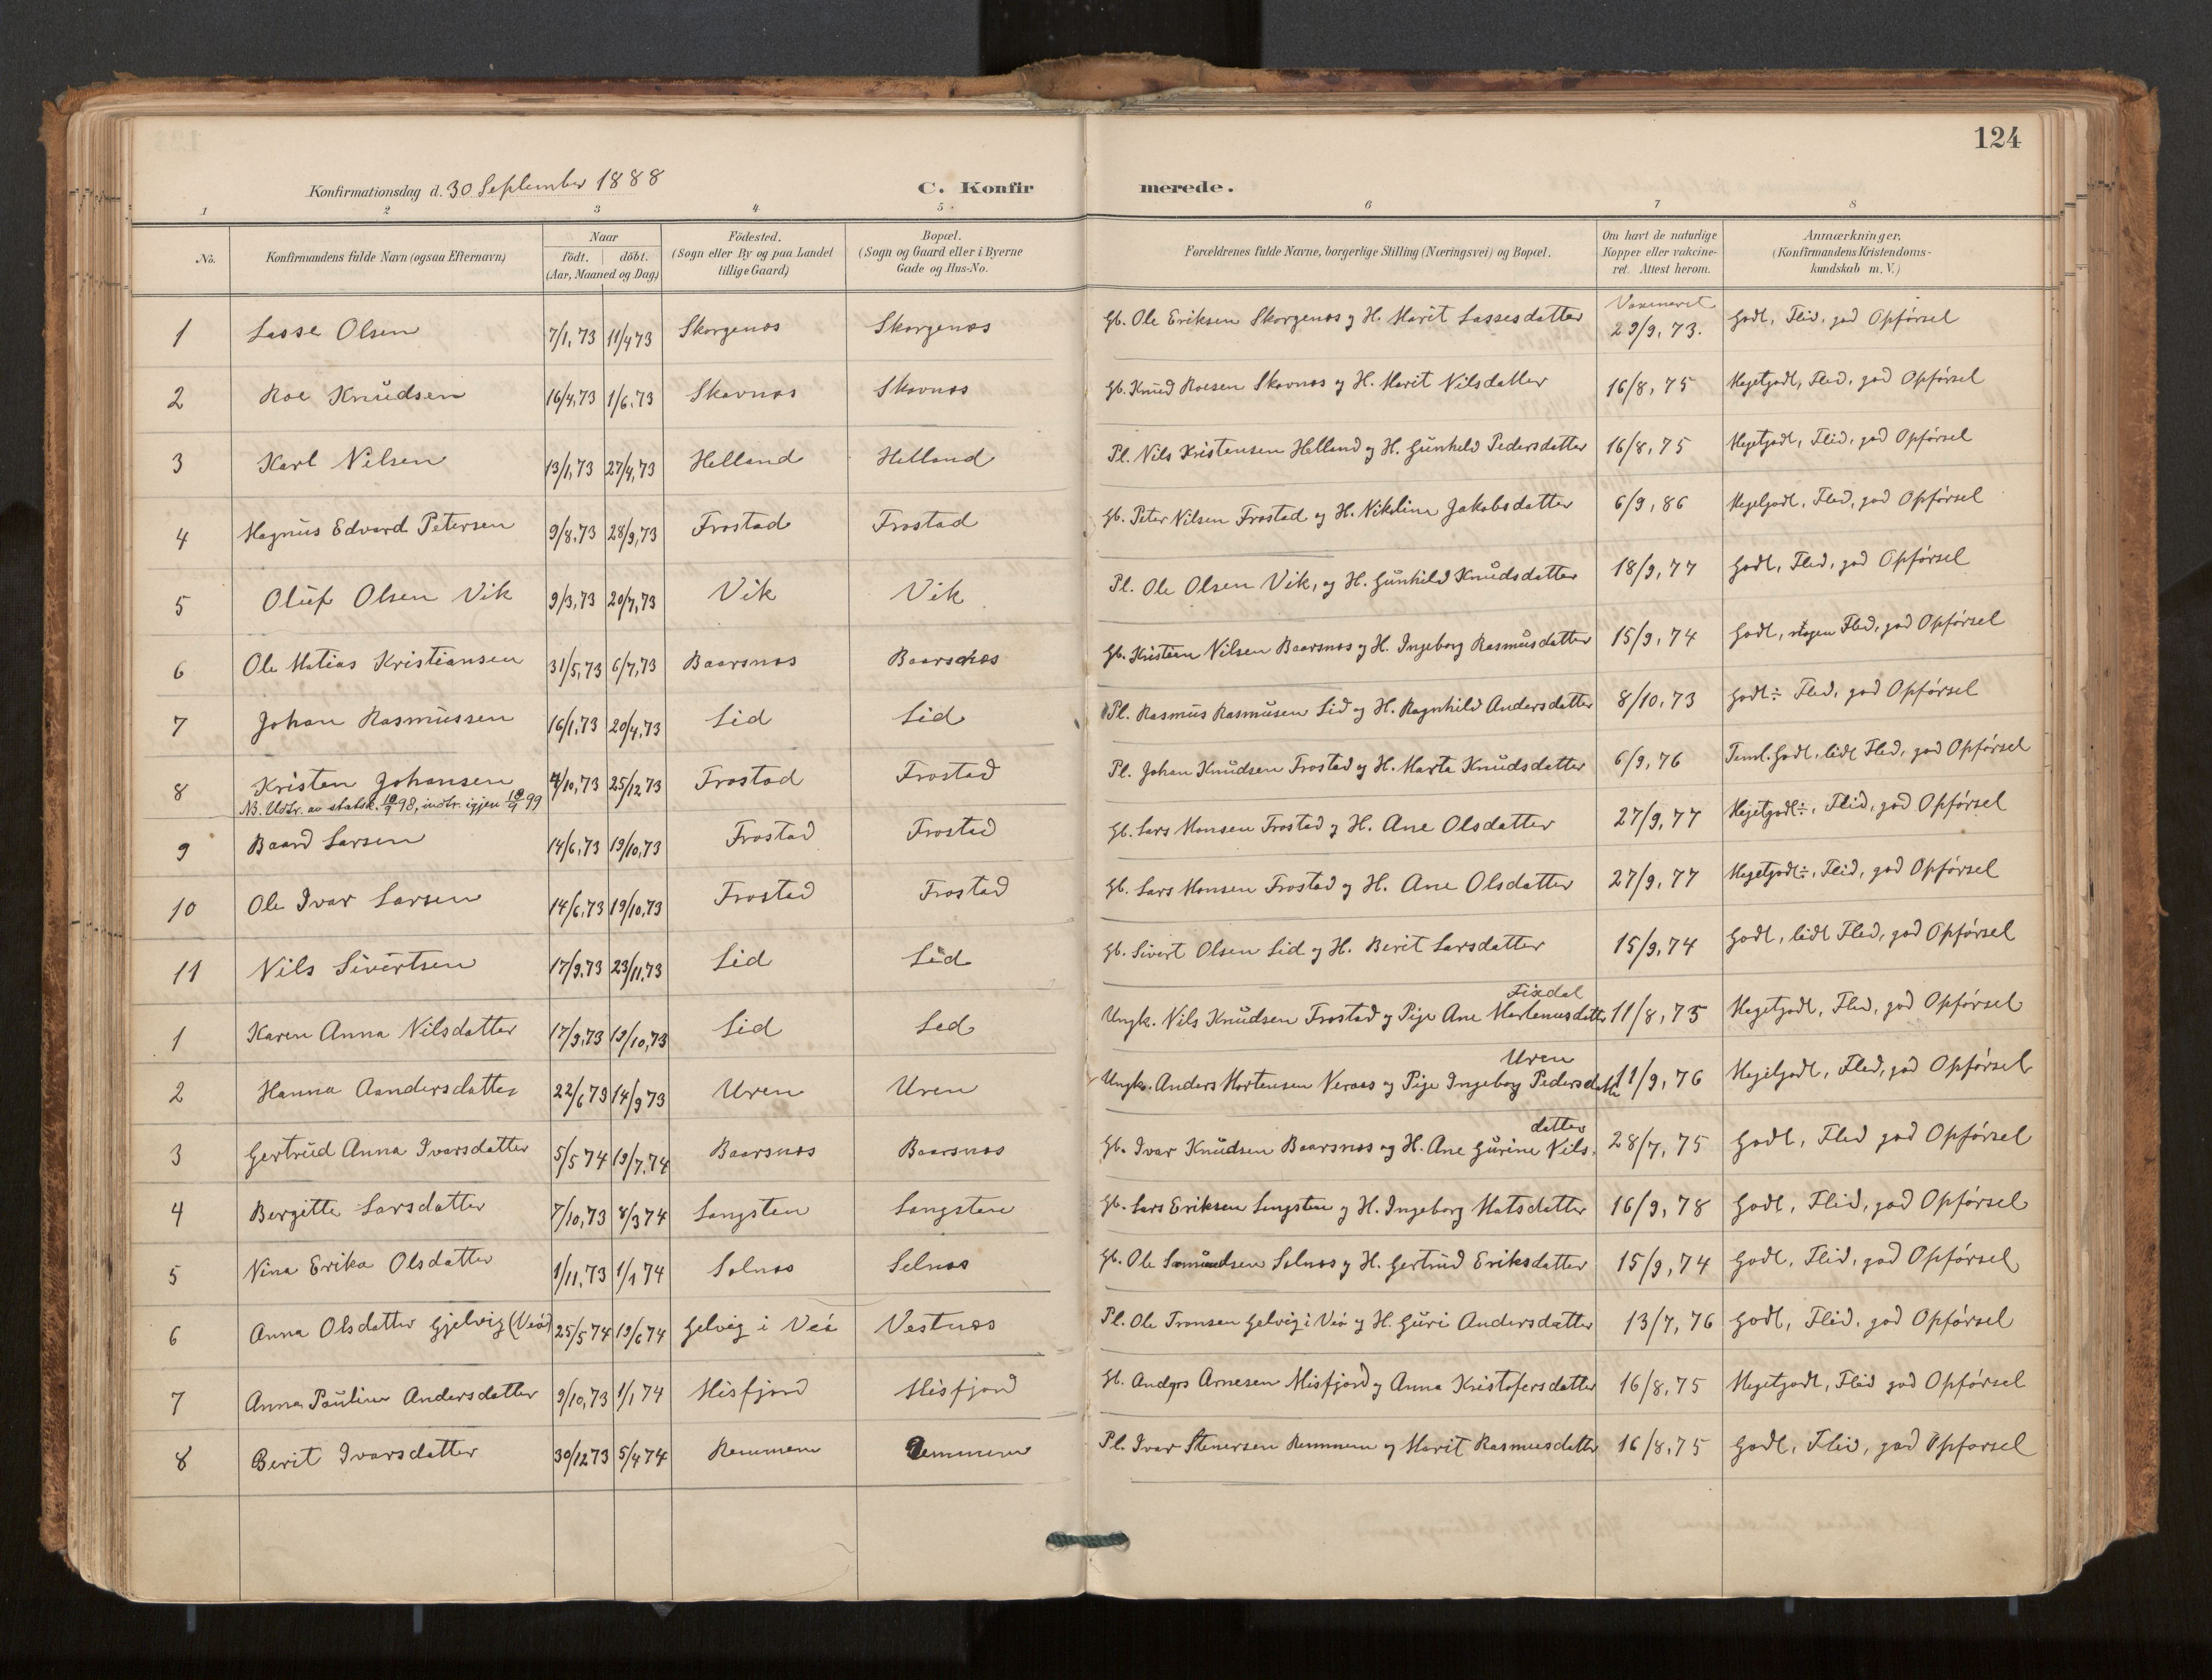 124
Konfirmationsdag d. 30 September 1888
C. Konfirmerede.
1 2 3 4 5 6 7 8
No. Konfirmandens fulde Navn (ogsaa Efternavn) Naar födt. döbt. (Aar, Maaned og Dag) Födested. (Sogn eller By og paa Landet tillige Gaard) Bopæl. (Sogn og Gaard eller i Byerne Gade og Hus-No. Forældrenes fulde Navne, borgerlige Stilling (Næringsvei) og Bopæl. Om havt de naturlige Kopper eller vakcineret. Attest herom. Anmærkninger, (Konfirmandens Kristendomskundskab m. V.)
1 Lasse Olsen 7/1,73 11/4 73 Skorgenæs Skorgenæs Gb. Ole Eriksen Skorgenæs og H. Marit Lassesdatter 29/9,73. Godt, Flid, god Opförsel
2 Roe Knudsen 16/4,73 1/6,73 Skavnæs Skavnæs Gb. Knud Roesen Skavnæs og H. Marit Nilsdatter 16/8,75 Megetgodt, Flid, god Opförsel
3 Karl Nilsen 13/1,73 27/4,73 Helland Helland Pl. Nils Kristensen Helland og H. Gunhild Pedersdatter 16/8,75 Megetgodt, Flid, god Opförsel
4 Magnus Edvard Petersen 9/8,73 28/9,73 Frostad Frostad Gb. Peter Nilsen Frostad og H. Nikoline Jakobsdatter 6/9,86 Megetgodt, Flid, god Opförsel
5 Oluf Olsen Vik 9/3,73 20/7,73 Vik Vik Pl. Ole Olsen Vik, og H. Gunhild Knudsdatter 18/9,77 Godt, Flid, god Opförsel
6 Ole Matias Kristiansen 31/5,73 6/7,73 Baarsnæs Baarsnæs Gb. Kristian Nilsen Baarsnæs og H. Ingeborg Rasmusdatter 15/9,74 Godt, nogen Flid, god Opförsel
7 Johan Rasmussen 16/1,73 20/4,73 Lid Lid Pl. Rasmus Rasmusen Lid og H. Ragnhild Andersdatter 8/10,73 Godt÷ Flid, god Opförsel
8 Kristen Johansen 4/10,73 25/12 73 Frostad Frostad Pl. Johan Knudsen Frostad og H. Marta Knudsdatter 6/9,76 Teml. Godt, lidt Flid, god Opförsel
NB. Udtr. av statsk. 10/9 98, indtr. igjen 10/9 99
9 Baard Larsen 14/6,73 19/10,73 Frostad Frostad Gb. Lars Monsen Frostad og H. Ane Olsdatter 27/9,77 Megetgodt÷, Flid, god Opförsel
10 Ole Ivar Larsen 14/6,73 19/10,73 Frostad Frostad Gb. Lars Monsen Frostad og H. Ane Olsdatter 27/9,77 Megetgodt÷, Flid, god Opförsel
11 Nils Sivertsen 17/9,73 23/11,73 Lid Lid Gb. Sivert Olsen Lid og H. Berit Larsdatter 15/9,74 Godt, lidt Flid, god Opförsel
Fixdal
1 Karen Anna Nilsdatter 17/9,73 19/10,73 Lid Lid Ungk. Nils Knudsen Frostad og Pige Ane Martenusdatter 11/8,75 Megetgodt, Flid, god Opförsel
Uren
2 Hanna Aandersdatter 22/6 73 14/9 73 Uren Uren Ungk. Anders Mortensen Neraas og Pige Ingeborg Pedersdatter 11/9,76 Megetgodt, Flid, god Opförsel
datter
3 Gertrud Anna Ivarsdatter 5/5 74 19/7,74 Baarsnæs Baarsnæs Gb. Ivar Knudsen Baarsnæs og H. Ane Gurine Nils. 28/7,75 Godt, Flid god Opförsel
4 Bergitte Larsdatter 7/10,73 8/3 74 Langsten Langsten Gb. Lars Eriksen Langsten og H. Ingeborg Matsdatter 16/9,78 Godt, Flid, god Opförsel
5 Nina Erika Olsdatter 1/11,73 1/1 74 Solnæs Selnæs Gb. Ole Samundsen Solnæs og H. Gertrud Eriksdatter 15/9,74 Godt, Flid, god Opförsel
6 Anna Olsdatter Gjelvig (Veö) 25/5 74 19/6 74 Gelvig i Veö Vestnæs Pl. Ole Tronsen Gelvig i Veö og H. Guri Andersdatter 13/7,76 Godt, Flid, god Opförsel
7 Anna Pauline Andersdatter 9/10,73 1/1 74 Misfjord Misfjord Gb. Anders Arnesen Misfjord og Anna Kristofersdatter 16/8,75 Megetgodt, Flid god Opförsel
8 Berit Ivarsdatter 30/12 73 5/4 74 Remmem Remmem Pl. Ivar Stenersen Remmem og Marit Rasmusdatter 16/8,75 Godt, Flid, god Opforsel